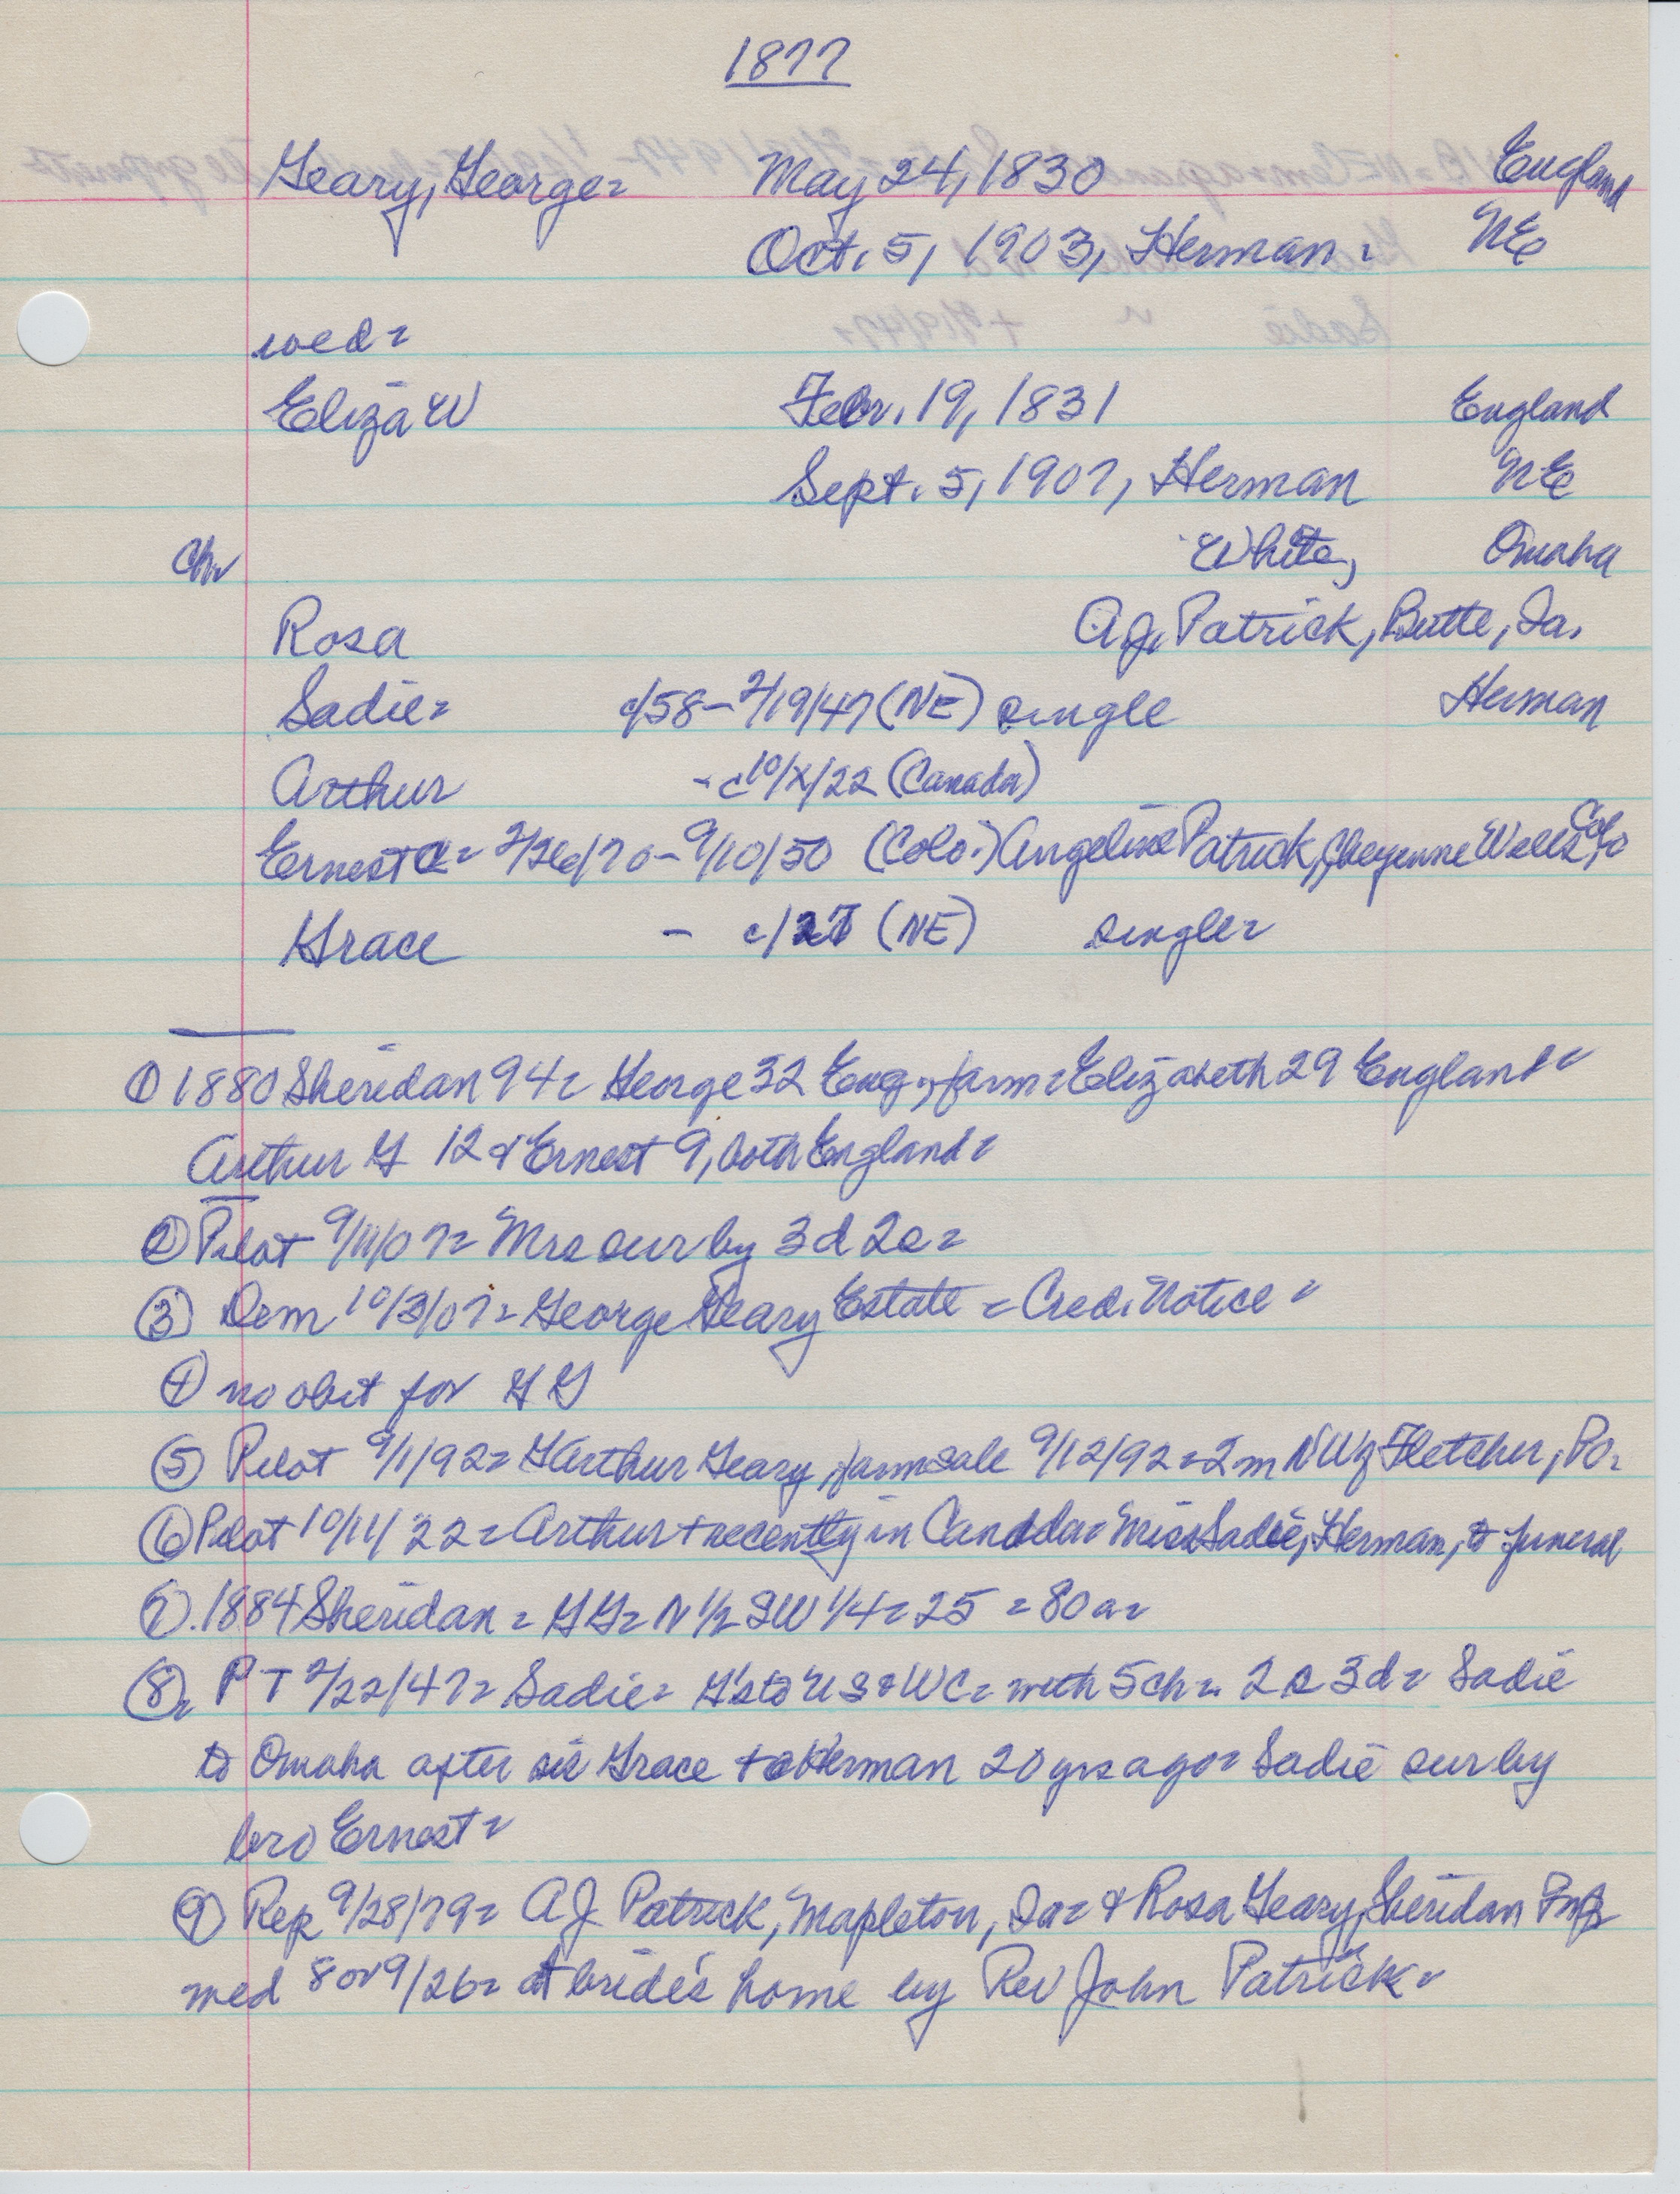 1877
Geary, George= May 24, 1830 England
Oct. 5, 1903, Herman = NE
wed=
Eliza W Febr. 19, 1831 England
Sept. 5, 1907, Herman NE
Ch= White, Omaha
Rosa A.J. Patrick, Butte, Ia.
Sadie= c/58-2/19/47 (NE) single Herman
Arthur - c10/X/22 (Canada)
Ernest = 2/26/70-9/10/50 (Colo.) Angeline Patrick, Cheyenne Wells Colo
Grace - c/27 (NE) single=
① 1880 Sheridan 94= George 32 Eng., farm= Elizabeth 29 England=
Arthur G 12 & Ernest 9, both England=
② Pilot 9/11/07= Mrs sur by 3d 2s=
③ Dem 10/3/07= George Geary Estate = Cred. Notice =
④ no obit for GG
⑤ Pilot 9/1/92= G Arthur Geary, farm sale 9/12/92=2m NW of Fletcher, PO=
⑥ Pilot 10/11/22= Arthur + recently in Canada= Miss Sadie, Herman, to funeral
⑦. 1884 Sheridan = GG= N 1/2 SW 1/4= 25 = 80a=
⑧= PT 2/22/47= Sadie= G's to US & WC= with 5 ch= 2s 3d= Sadie
to Omaha after sis Grace + at Herman 20 yrs ago= Sadie sur by
bro Ernest=
⑨ Rep 9/28/79= AJ Patrick, Mapleton, Ia= & Rosa Geary, Sheridan
wed 8 or 9/26= at bride's home by Rev John Patrick=